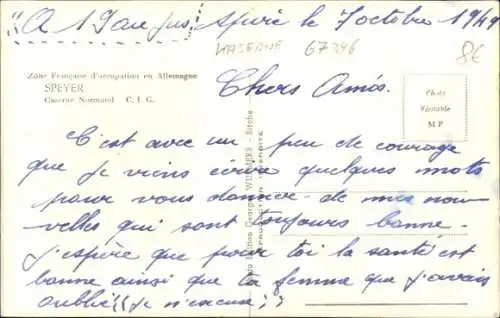 "A 19 ans jus" Spire le 7 octobre 1949
KASERNE 67346
8€
Zône Française d'occupation en Allemagne
SPEYER
Caserne Normand C. I. G.
Chers Amis.
Photo
Véritable
M P
C'est avec un peu de courage
que je viens écrire quelques mots
pour vous donner de mes nou-
velles qui sont toujours bonne.
j'espère que pour toi la santé est
bonne ainsi que ta femme que j'avais
oublié (je m'excuse)